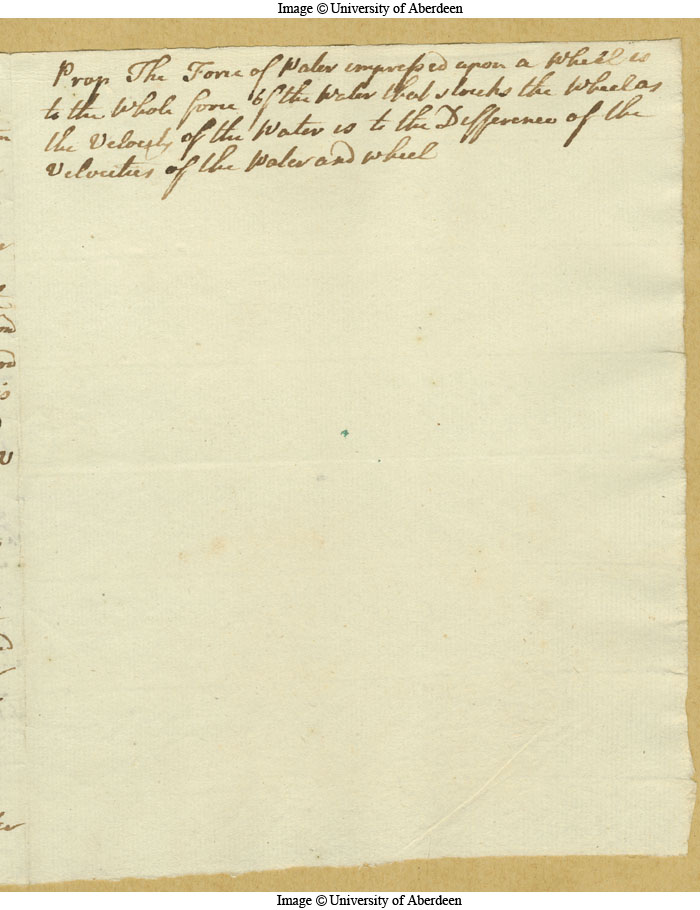 Image © University of Aberdeen
Prop The Force of Water impressed upon a Wheel is
to the Whole force of the Water that strikes the Wheel as
the Velocity of the Water is to the Difference of the
Velocities of the Water and Wheel
Image © University of Aberdeen